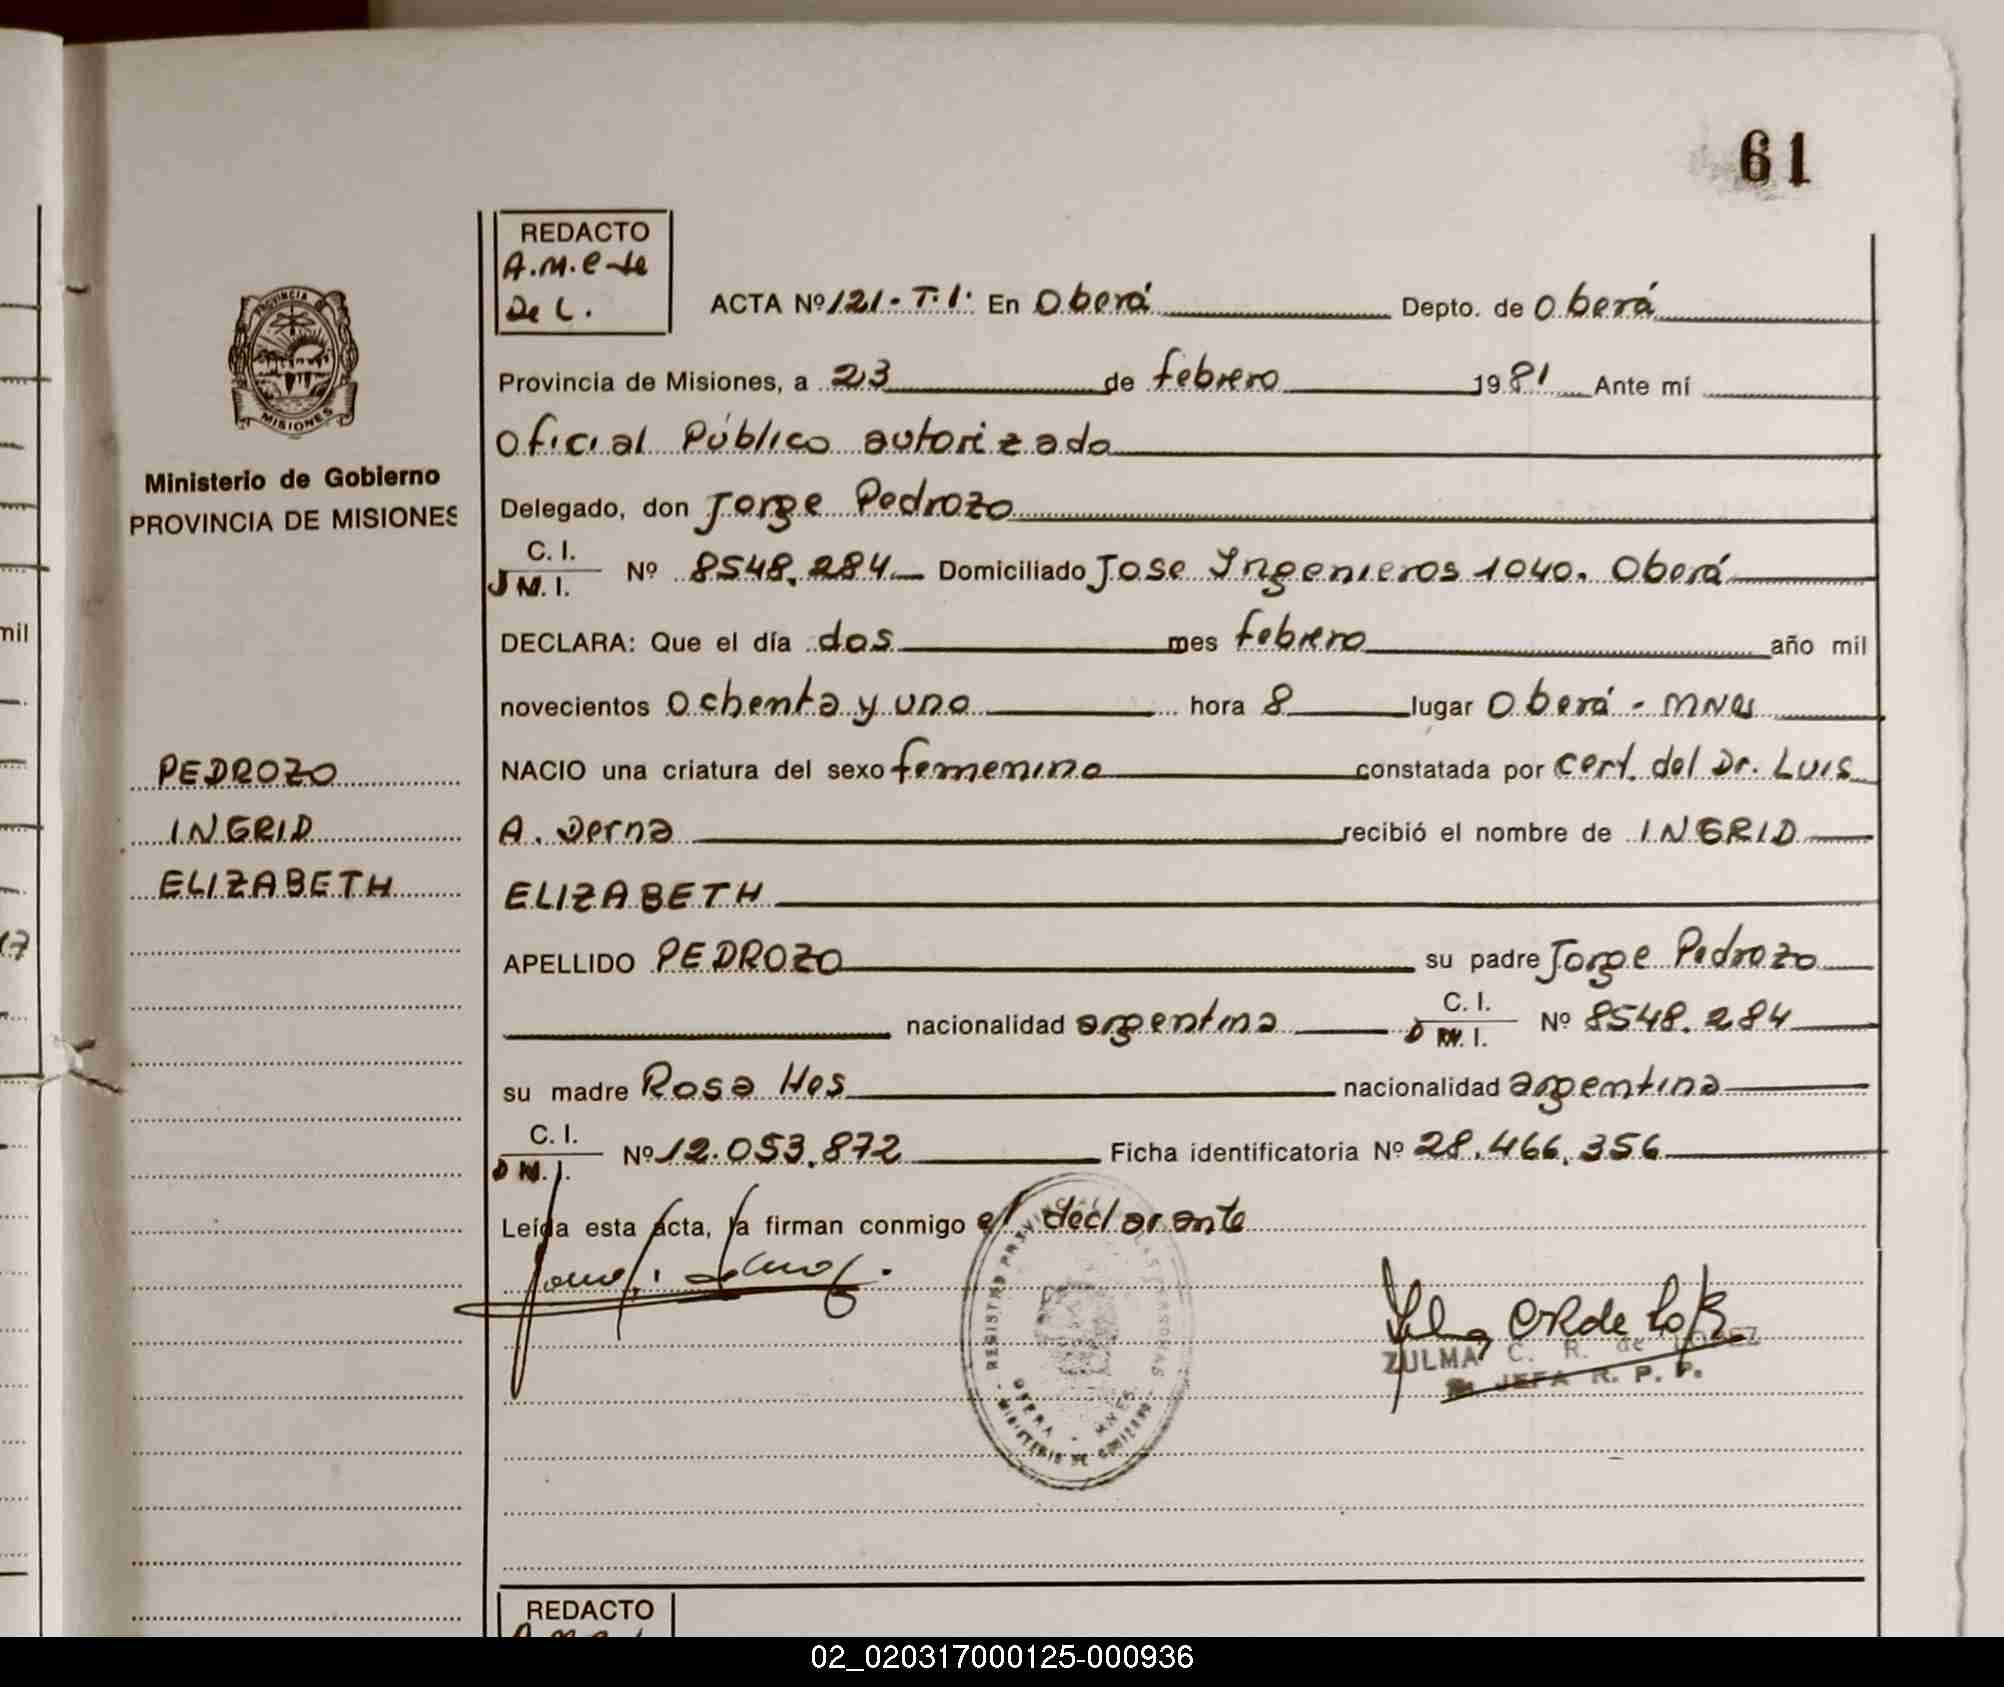 61
REDACTO
A.M.C de
De L.
ACTA Nº 121 - T.I. En Oberá Depto. de Oberá
Provincia de Misiones, a 23 de febrero 1981 Ante mí
Oficial Público autorizado
Delegado, don Jorge Pedrozo
C. I.
M. I. Nº 8548.284 Domiciliado Jose Ingenieros 1040. Oberá
DECLARA: Que el día dos mes febrero año mil
novecientos ochenta y uno hora 8 lugar Oberá - MNes
NACIO una criatura del sexo femenino constatada por cert. del Dr. Luis
A. Derna recibió el nombre de INGRID
ELIZABETH
APELLIDO PEDROZO su padre Jorge Pedrozo
nacionalidad argentina C. I.
D M. I. Nº 8548.284
su madre Rosa Hes nacionalidad argentina
C. I.
D M. I. Nº 12.053.872 Ficha identificatoria Nº 28.466.356
Leída esta acta, la firman conmigo el declarante
ZULMA C. R. de LOPEZ
JEFA R. P. P.
REGISTRO PROVINCIAL DE LAS PERSONAS
OBERA - MNES.
MINISTERIO DE GOBIERNO
PROVINCIA DE
MISIONES
Ministerio de Gobierno
PROVINCIA DE MISIONES
PEDROZO
INGRID
ELIZABETH
mil
17
REDACTO
02_020317000125-000936